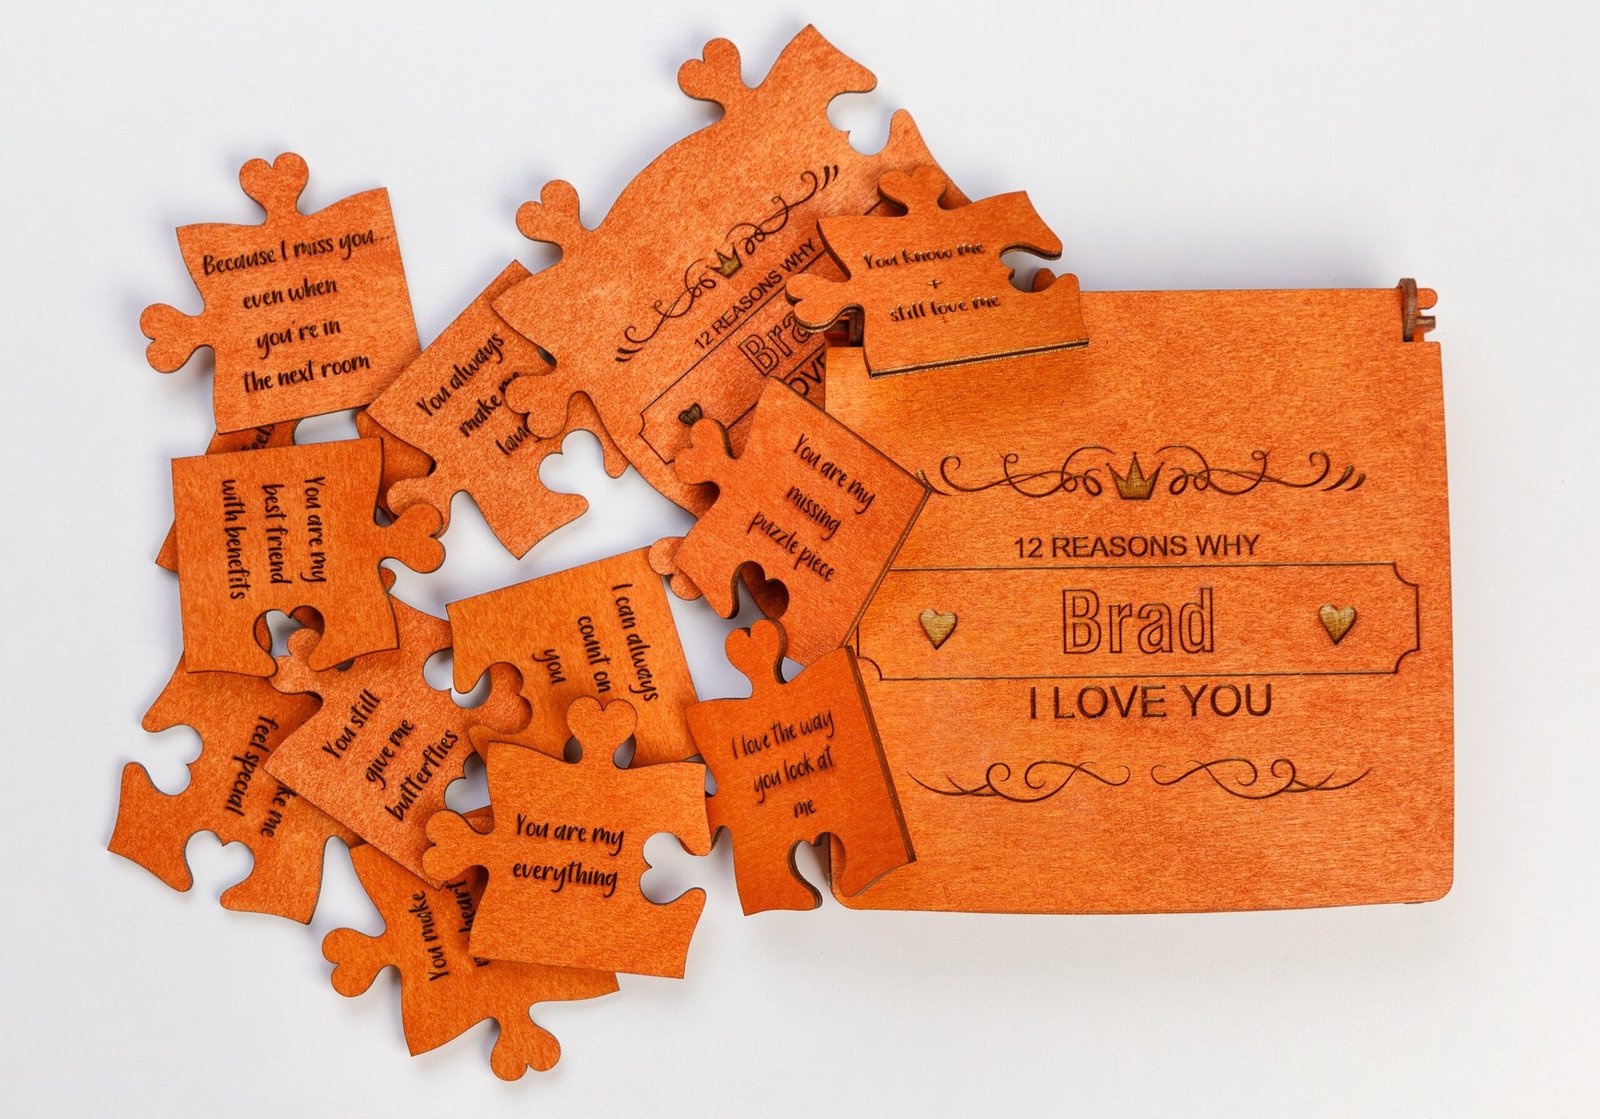 Because I miss you...
even when
you're in
the next room
You always
make
12 REASONS WHY
You know me
+
still love me
You are my
best friend
with benefits
You are my
missing
puzzle piece
I can always
count on
you
12 REASONS WHY
Brad
I LOVE YOU
You still
give me
butterflies
feel special
me
I love the way
you look at
me
You are my
everything
You make
heart